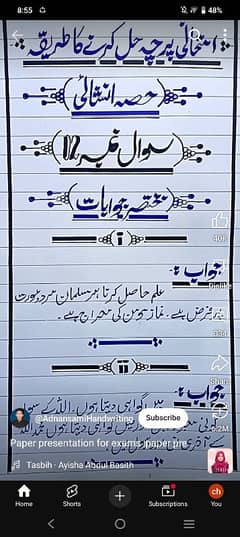 8:55
48%
امتحانی پرچہ حل کرنے کا طریقہ
(حصہ انشائی)
(سوال نمبر 2)
(مختصر جوابات)
i
جواب :
علم حاصل کرنا ہر مسلمان مرد و عورت
پر فرض ہے۔ نماز مومن کی معراج ہے۔
ii
جواب :
میں گواہی دیتا ہوں۔ اللہ کے سوا
40K
Dislike
334
Share
6.2M
@AdnansamiHandwriting
Subscribe
Paper presentation for exams|paper pre
Tasbih · Ayisha Abdul Basith
Home
Shorts
Subscriptions
You